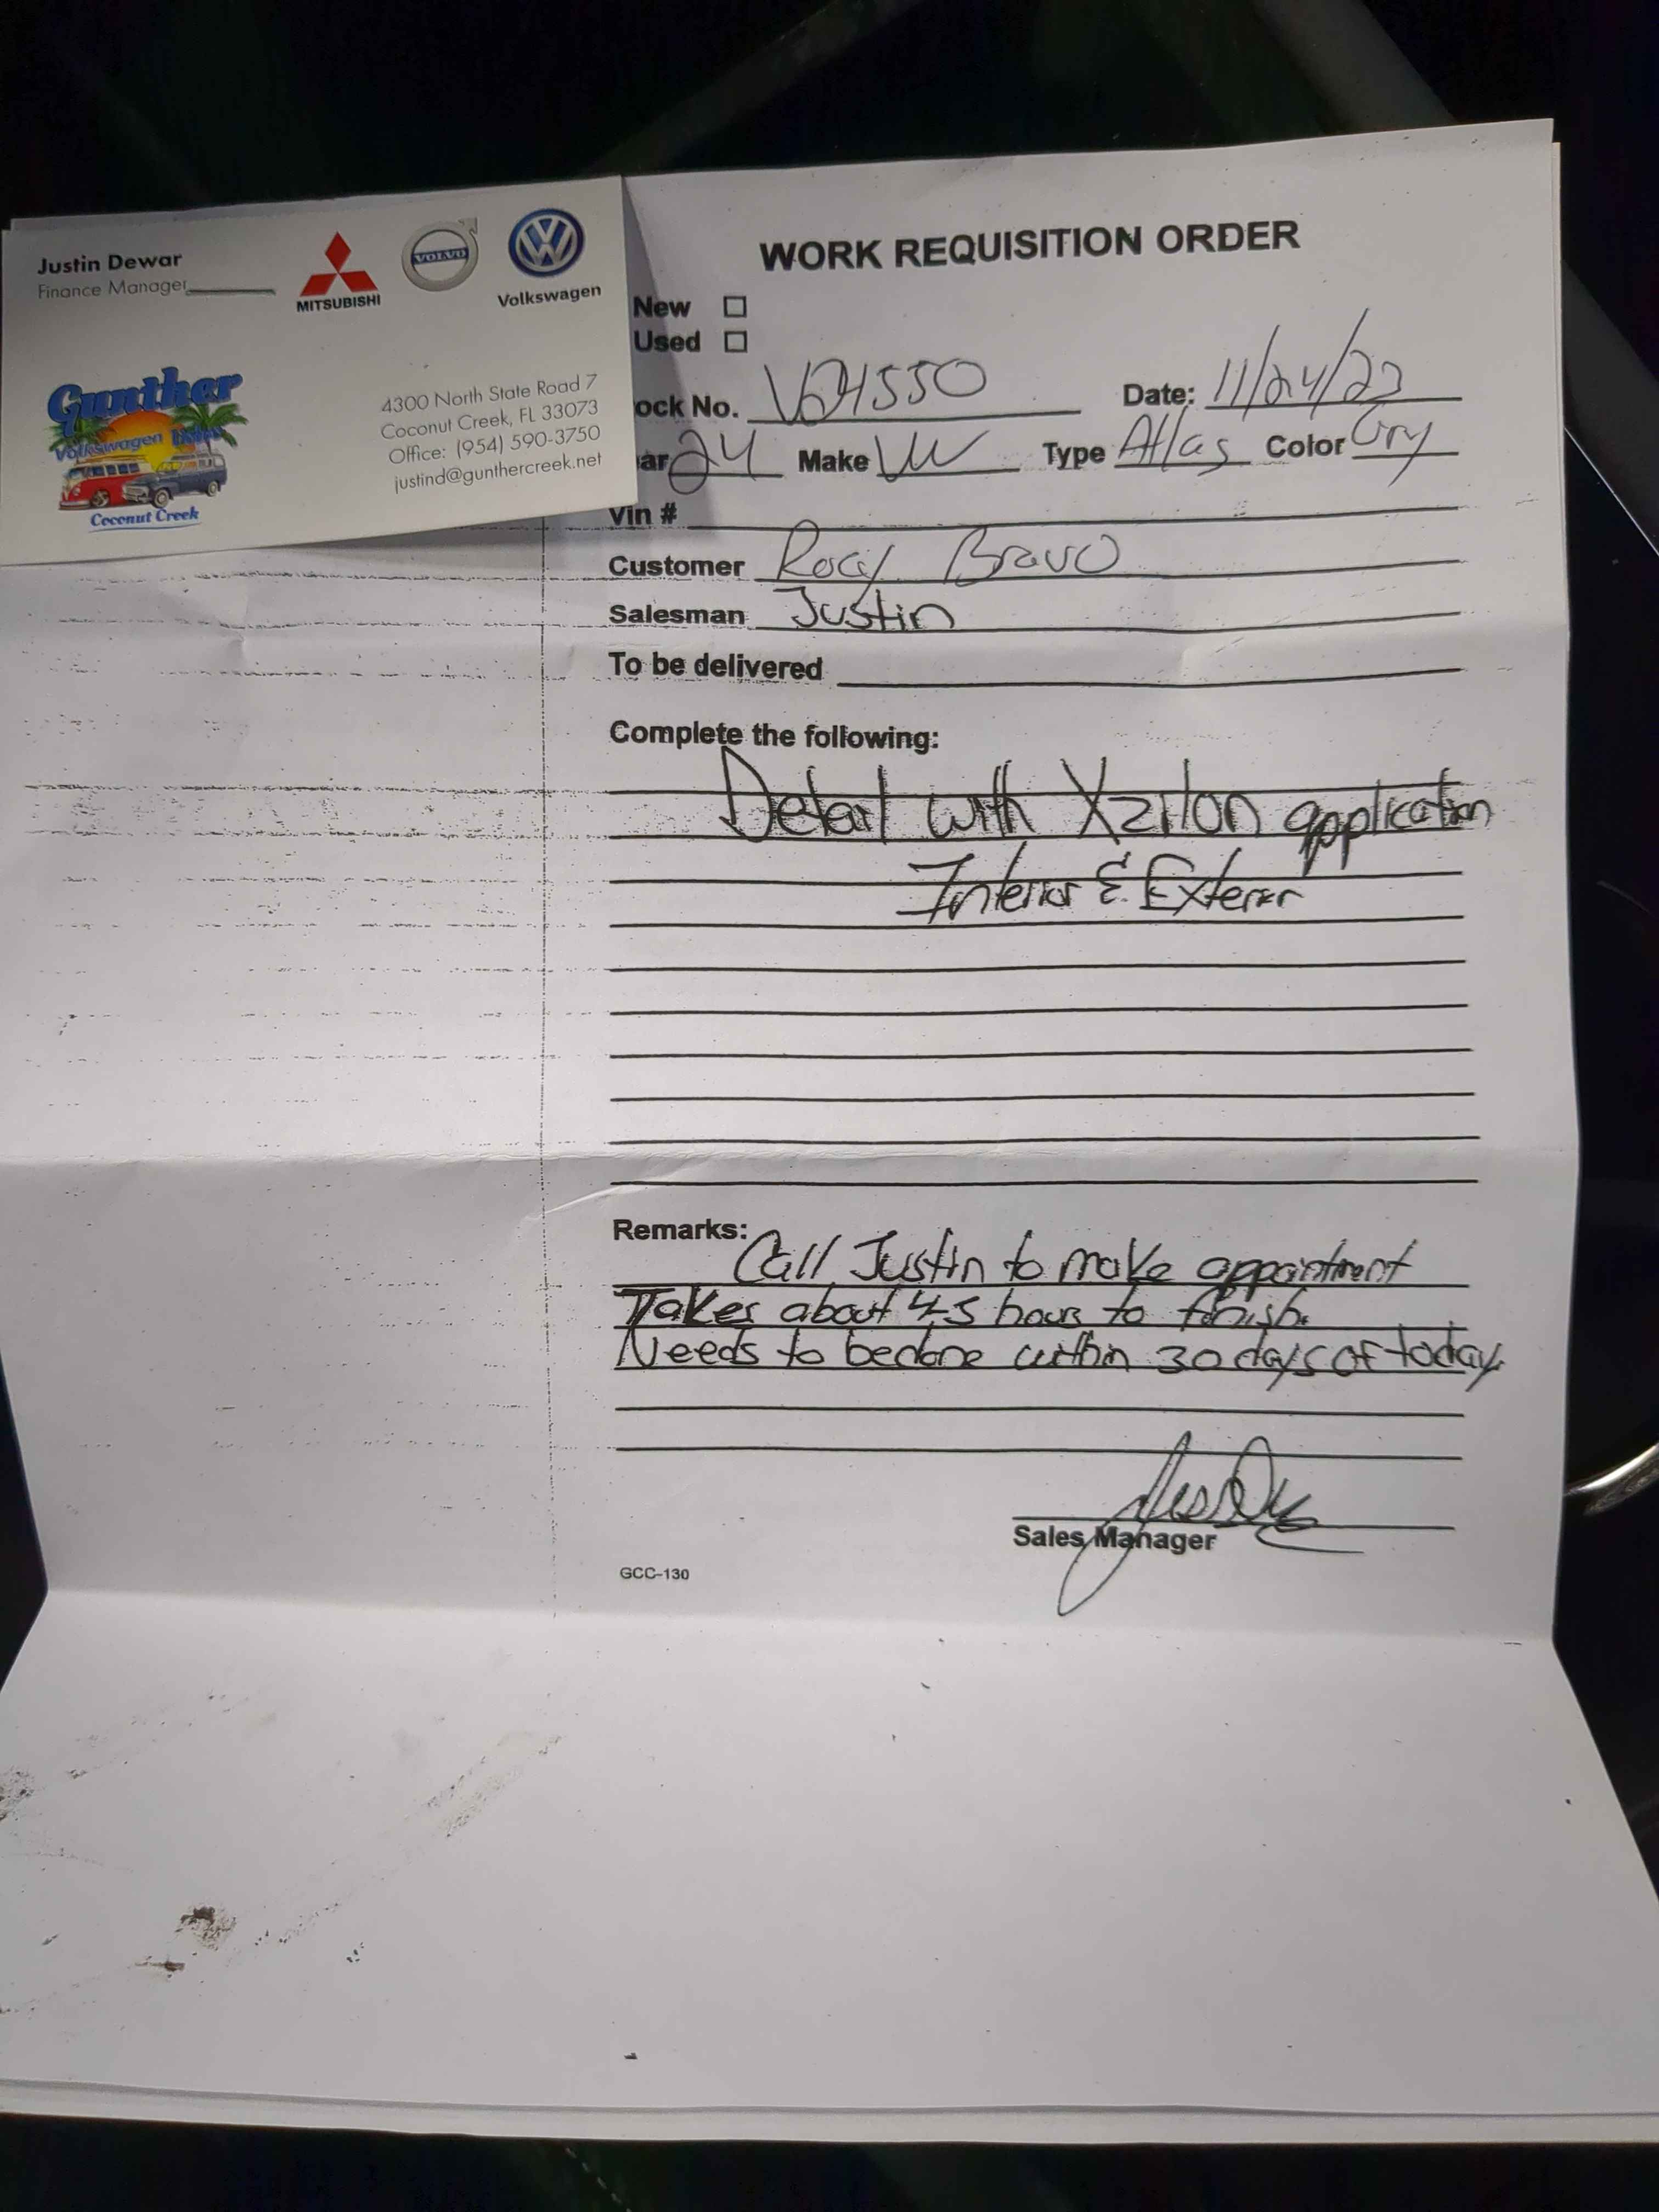 Justin Dewar
Finance Manager
MITSUBISHI
VOLVO
Volkswagen
Gunther
Volkswagen
Coconut Creek
4300 North State Road 7
Coconut Creek, FL 33073
Office: (954) 590-3750
justind@gunthercreek.net
WORK REQUISITION ORDER
New
Used
ock No. V24550 Date: 11/24/23
ar 24 Make VW Type Atlas Color Gry
Vin #
Customer Rocy Bravo
Salesman Justin
To be delivered
Complete the following:
Detail with Xzilon application
Interior & Exterior
Remarks:
Call Justin to make appointment
Takes about 4-5 hours to finish.
Needs to be done within 30 days of today.
Sales Manager
GCC-130